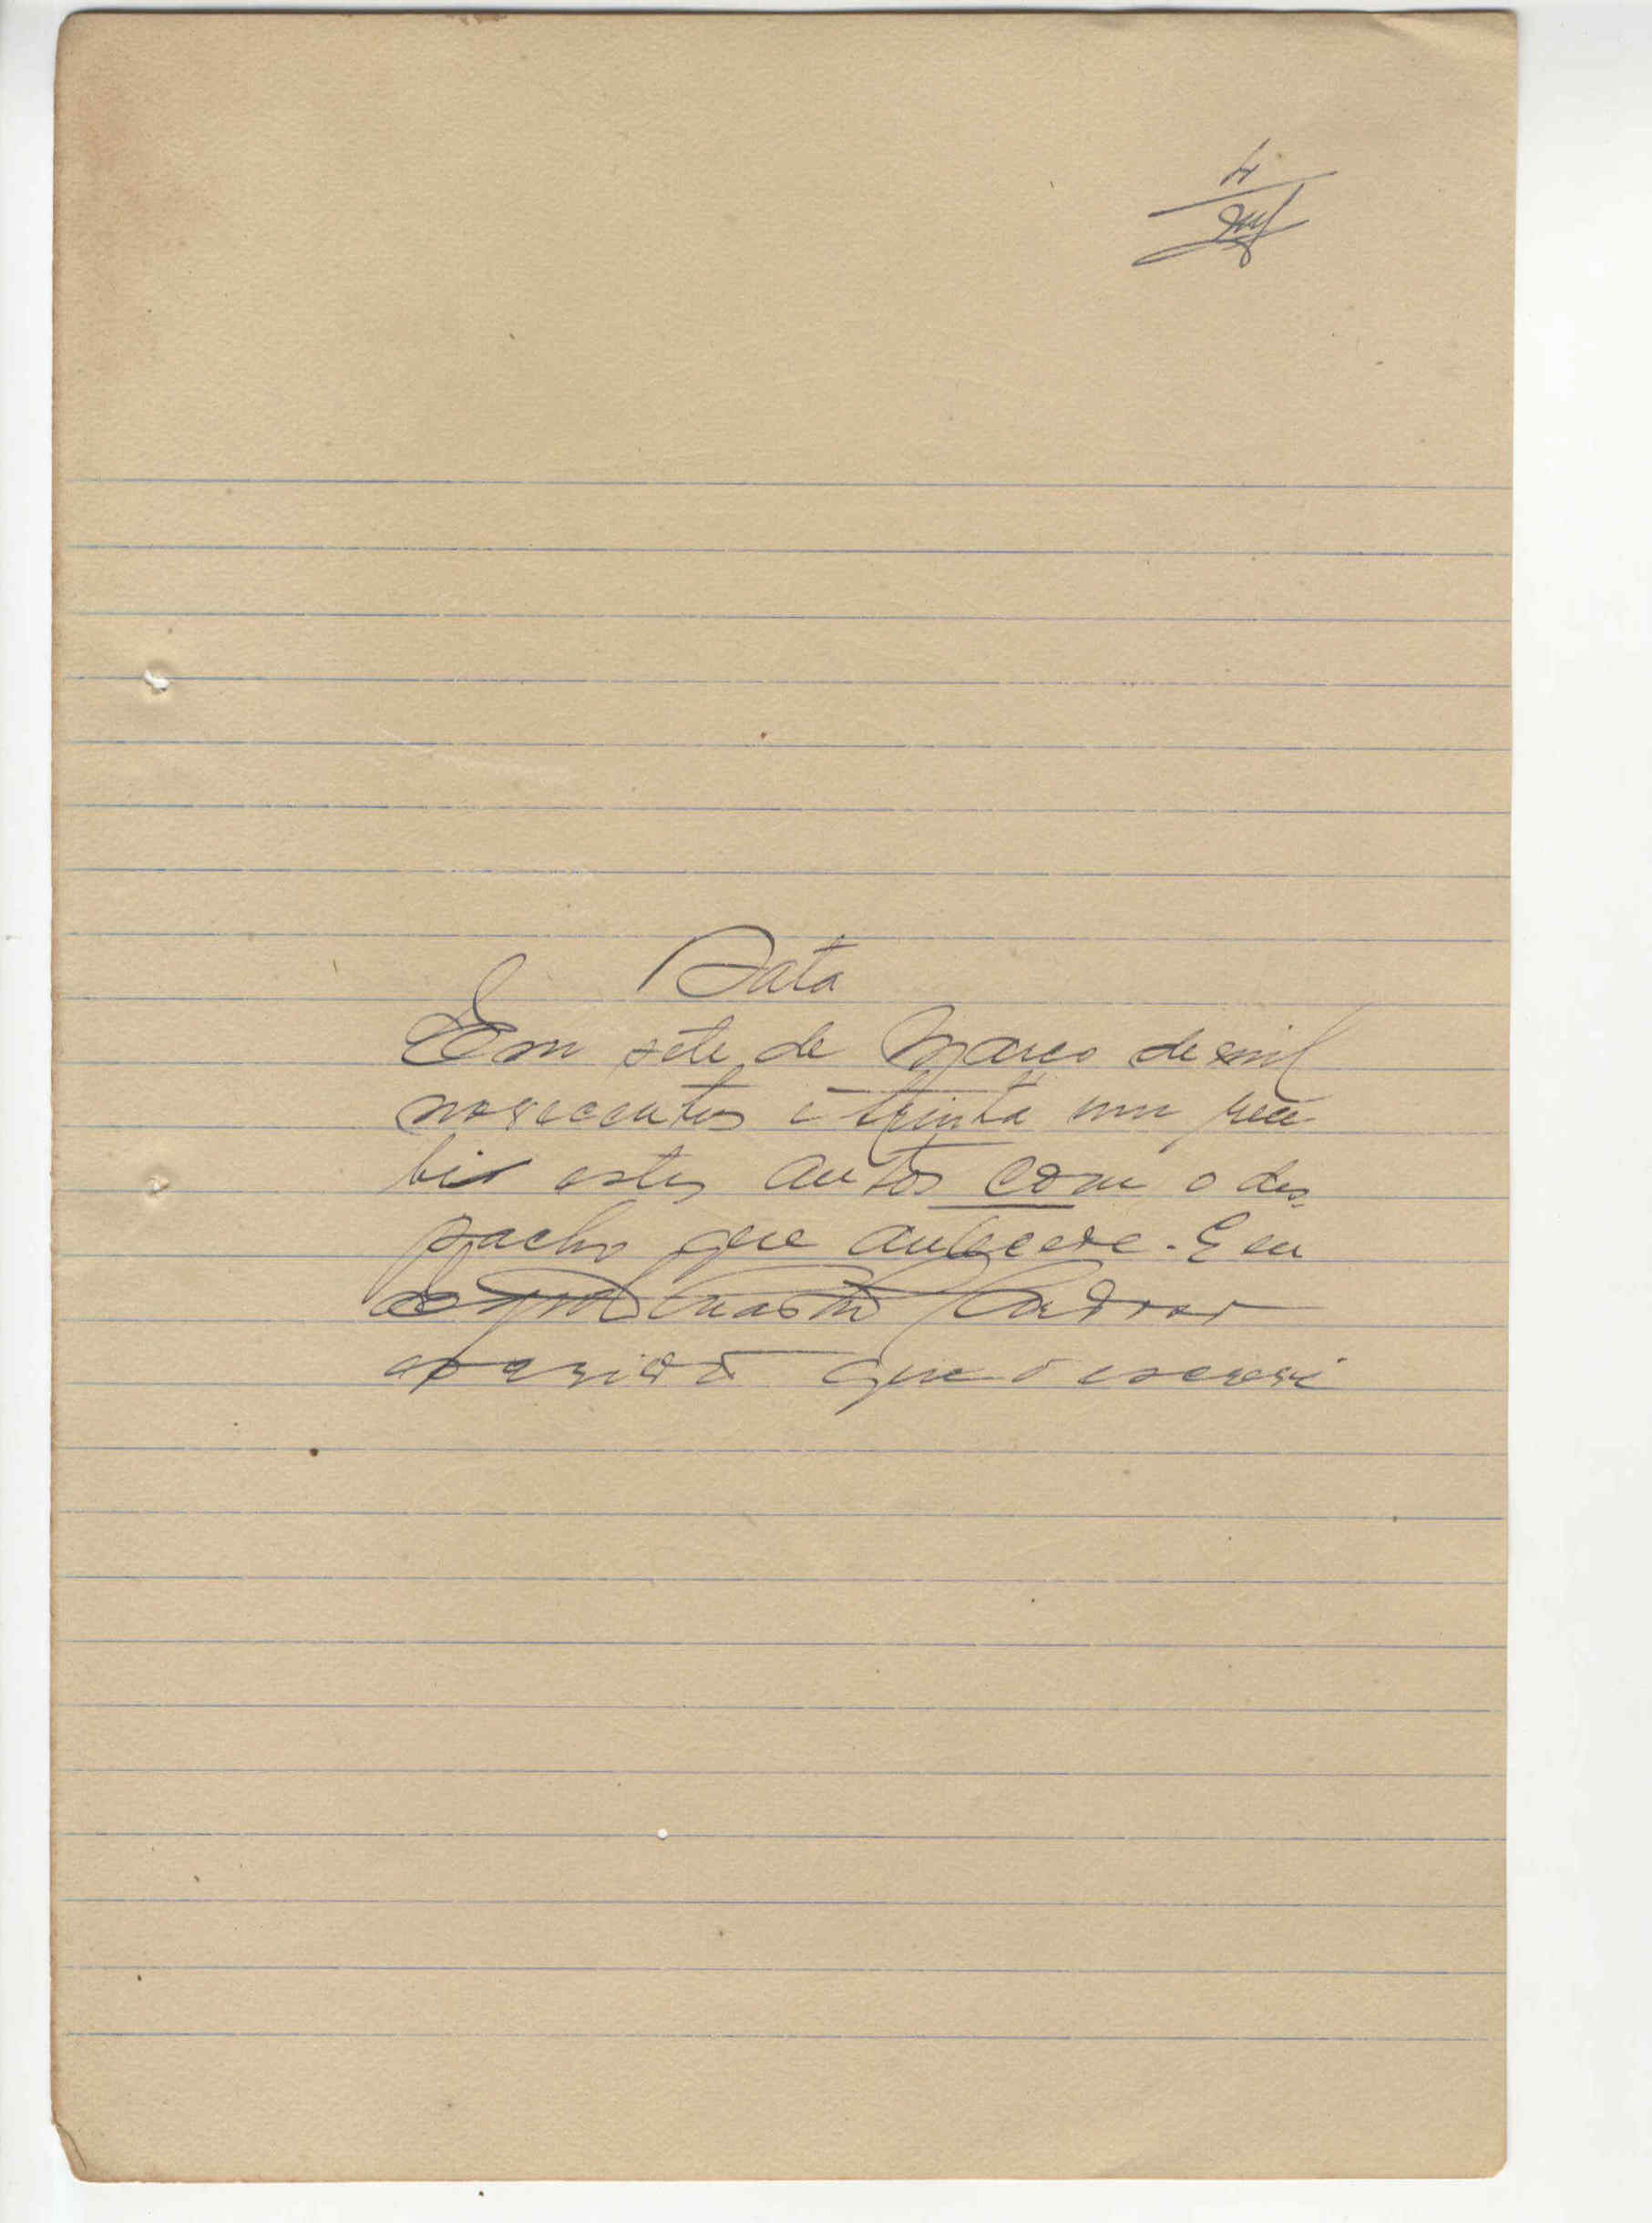 4
Data
Em sete de Março de mil
novecentos e trinta um rece
bi estes autos com o des
pacho que antecede. Eu
escrivão que o escrevi